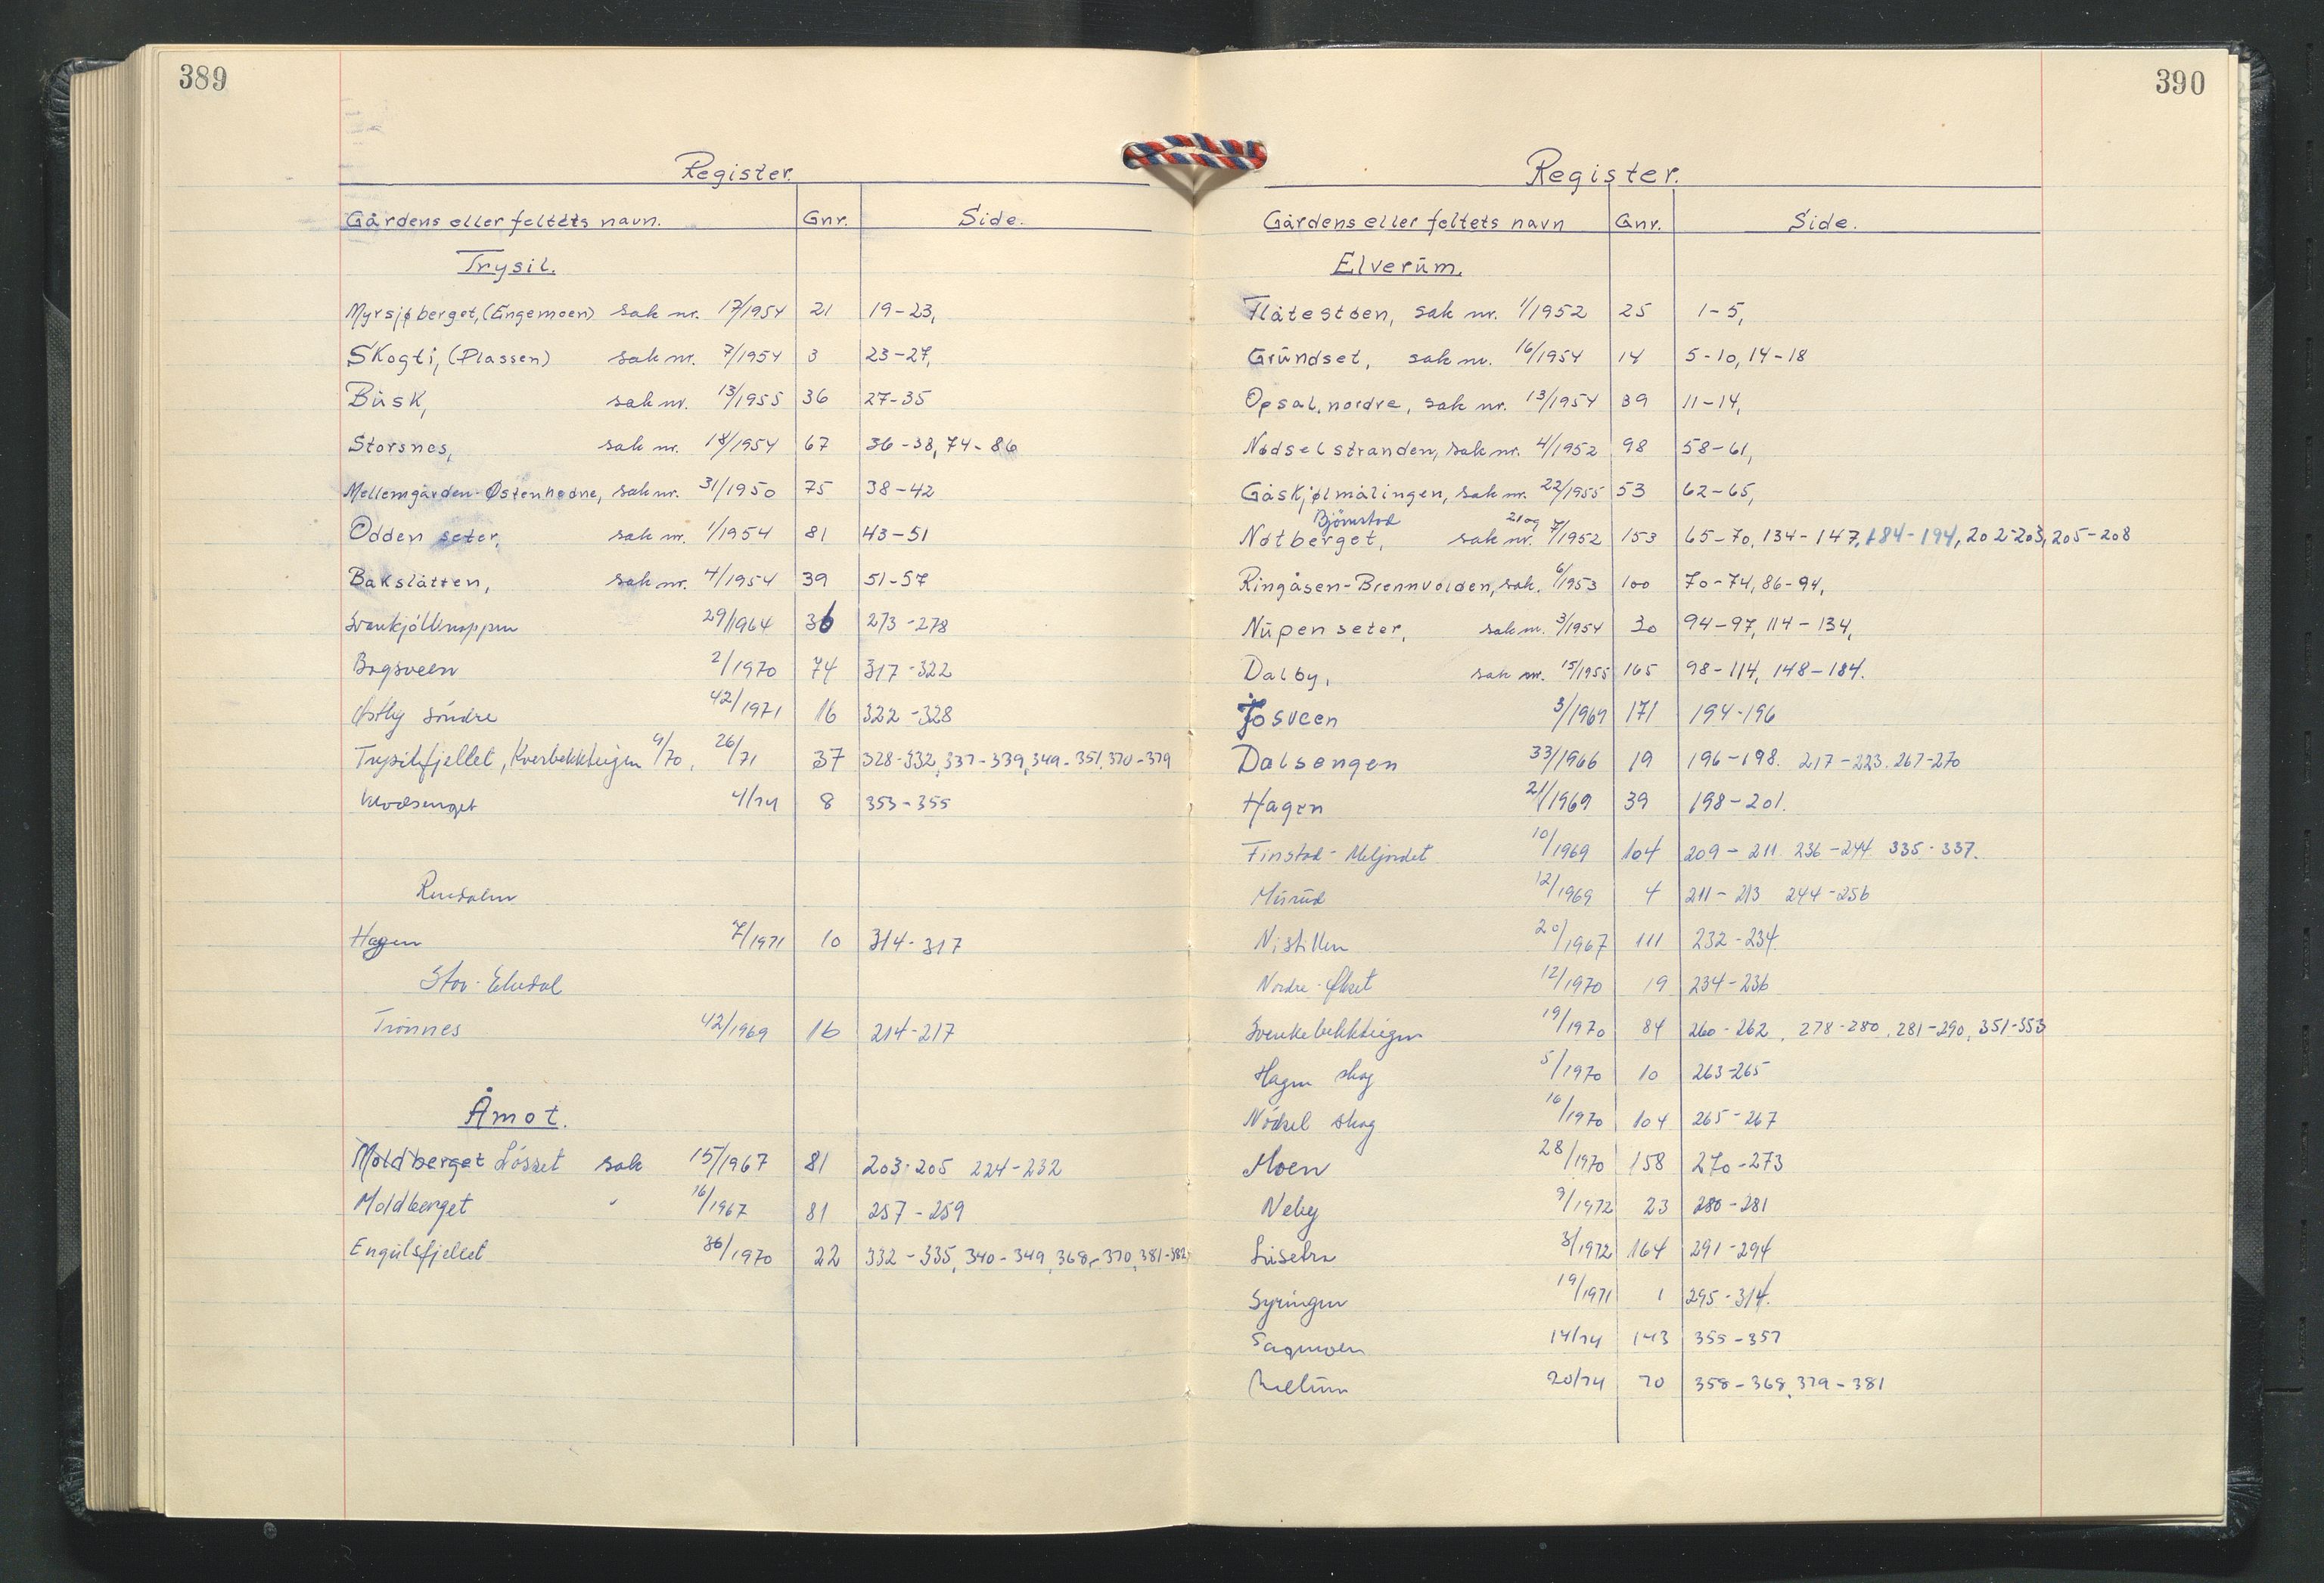 389
Register.
Gårdens eller feltets navn. Gnr. Side.
Trysil.
Myrsjøberget, (Engemoen) sak nr. 17/1954 21 19-23,
Skogli, (Plassen) sak nr. 7/1954 3 23-27,
Busk, sak nr. 13/1955 36 27-35
Storsnes, sak nr. 18/1954 67 36-38, 74-86
Mellemgården-Østenhedne, sak nr. 31/1950 75 38-42
Odden seter, sak nr. 1/1954 81 43-51
Bakslåtten, sak nr. 4/1954 39 51-57
29/1964 36 273-278
2/1970 74 317-322
Østby söndre 42/1971 16 322-328
Trysilfjellet, Kverbekkteigen 9/70, 26/71 37 328-332, 337-339, 349-351, 370-379
4/74 8 353-355
Rendalen
Hagen 7/1971 10 314-317
Stor-Elvdal
Trönnes 42/1969 16 214-217
Åmot.
Moldberget Lösset sak 15/1967 81 203-205 224-232
Moldberget " 16/1967 81 257-259
Engulsfjellet 36/1970 22 332-335, 340-349, 368-370, 381-382
390
Register.
Gårdens eller feltets navn Gnr. Side.
Elverum.
Flåtestøen, sak nr. 1/1952 25 1-5,
Grundset, sak nr. 16/1954 14 5-10, 14-18
Opsal, nordre, sak nr. 13/1954 39 11-14,
Nødselstranden, sak nr. 4/1952 98 58-61,
Gåskjølmålingen, sak nr. 22/1955 53 62-65,
Björnstad 21 og
Nøtberget, sak nr. 7/1952 153 65-70, 134-147, 184-194, 202-203, 205-208
Ringåsen-Brennvolden, sak. 6/1953 100 70-74, 86-94,
Nupen seter, sak nr. 3/1954 30 94-97, 114-134,
Dalby, sak nr. 15/1955 165 98-114, 148-184.
Josveen 3/1969 171 194-196
Dalsengen 33/1966 19 196-198. 217-223. 267-270
Hagen 21/1969 39 198-201.
Finstad-Meljordet 10/1969 104 209-211 236-244 335-337.
Misrud 12/1969 4 211-213 244-256
Nistillen 20/1967 111 232-234
Nordre-Økset 12/1970 19 234-236
Svenkebekkteigen 19/1970 84 260-262, 278-280, 281-290, 351-353
Hagen skog 5/1970 10 263-265
Nödsel skog 16/1970 104 265-267
Moen 28/1970 158 270-273
Neby 9/1972 23 280-281
Lusetra 3/1972 164 291-294
Syringen 19/1971 1 295-314.
Sagmoen 14/74 143 355-357
Meltun 20/74 70 358-368, 379-381